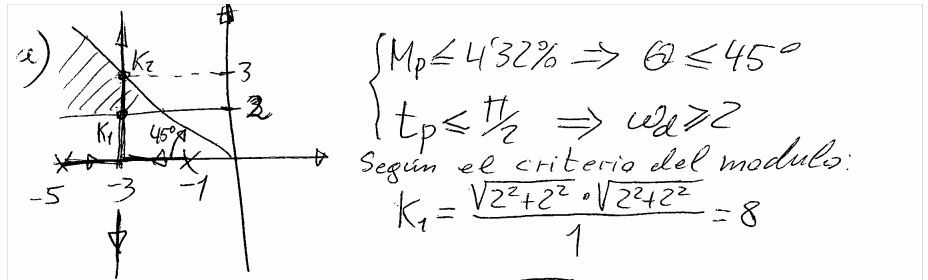 a)
K2
3
2
K1
45º
-5
-3
-1
Mp ≤ 4'32% ⇒ θ ≤ 45º
tp ≤ π/2 ⇒ ωd ≥ 2
Según el criterio del modulo:
K1 = √2²+2² · √2²+2² / 1 = 8